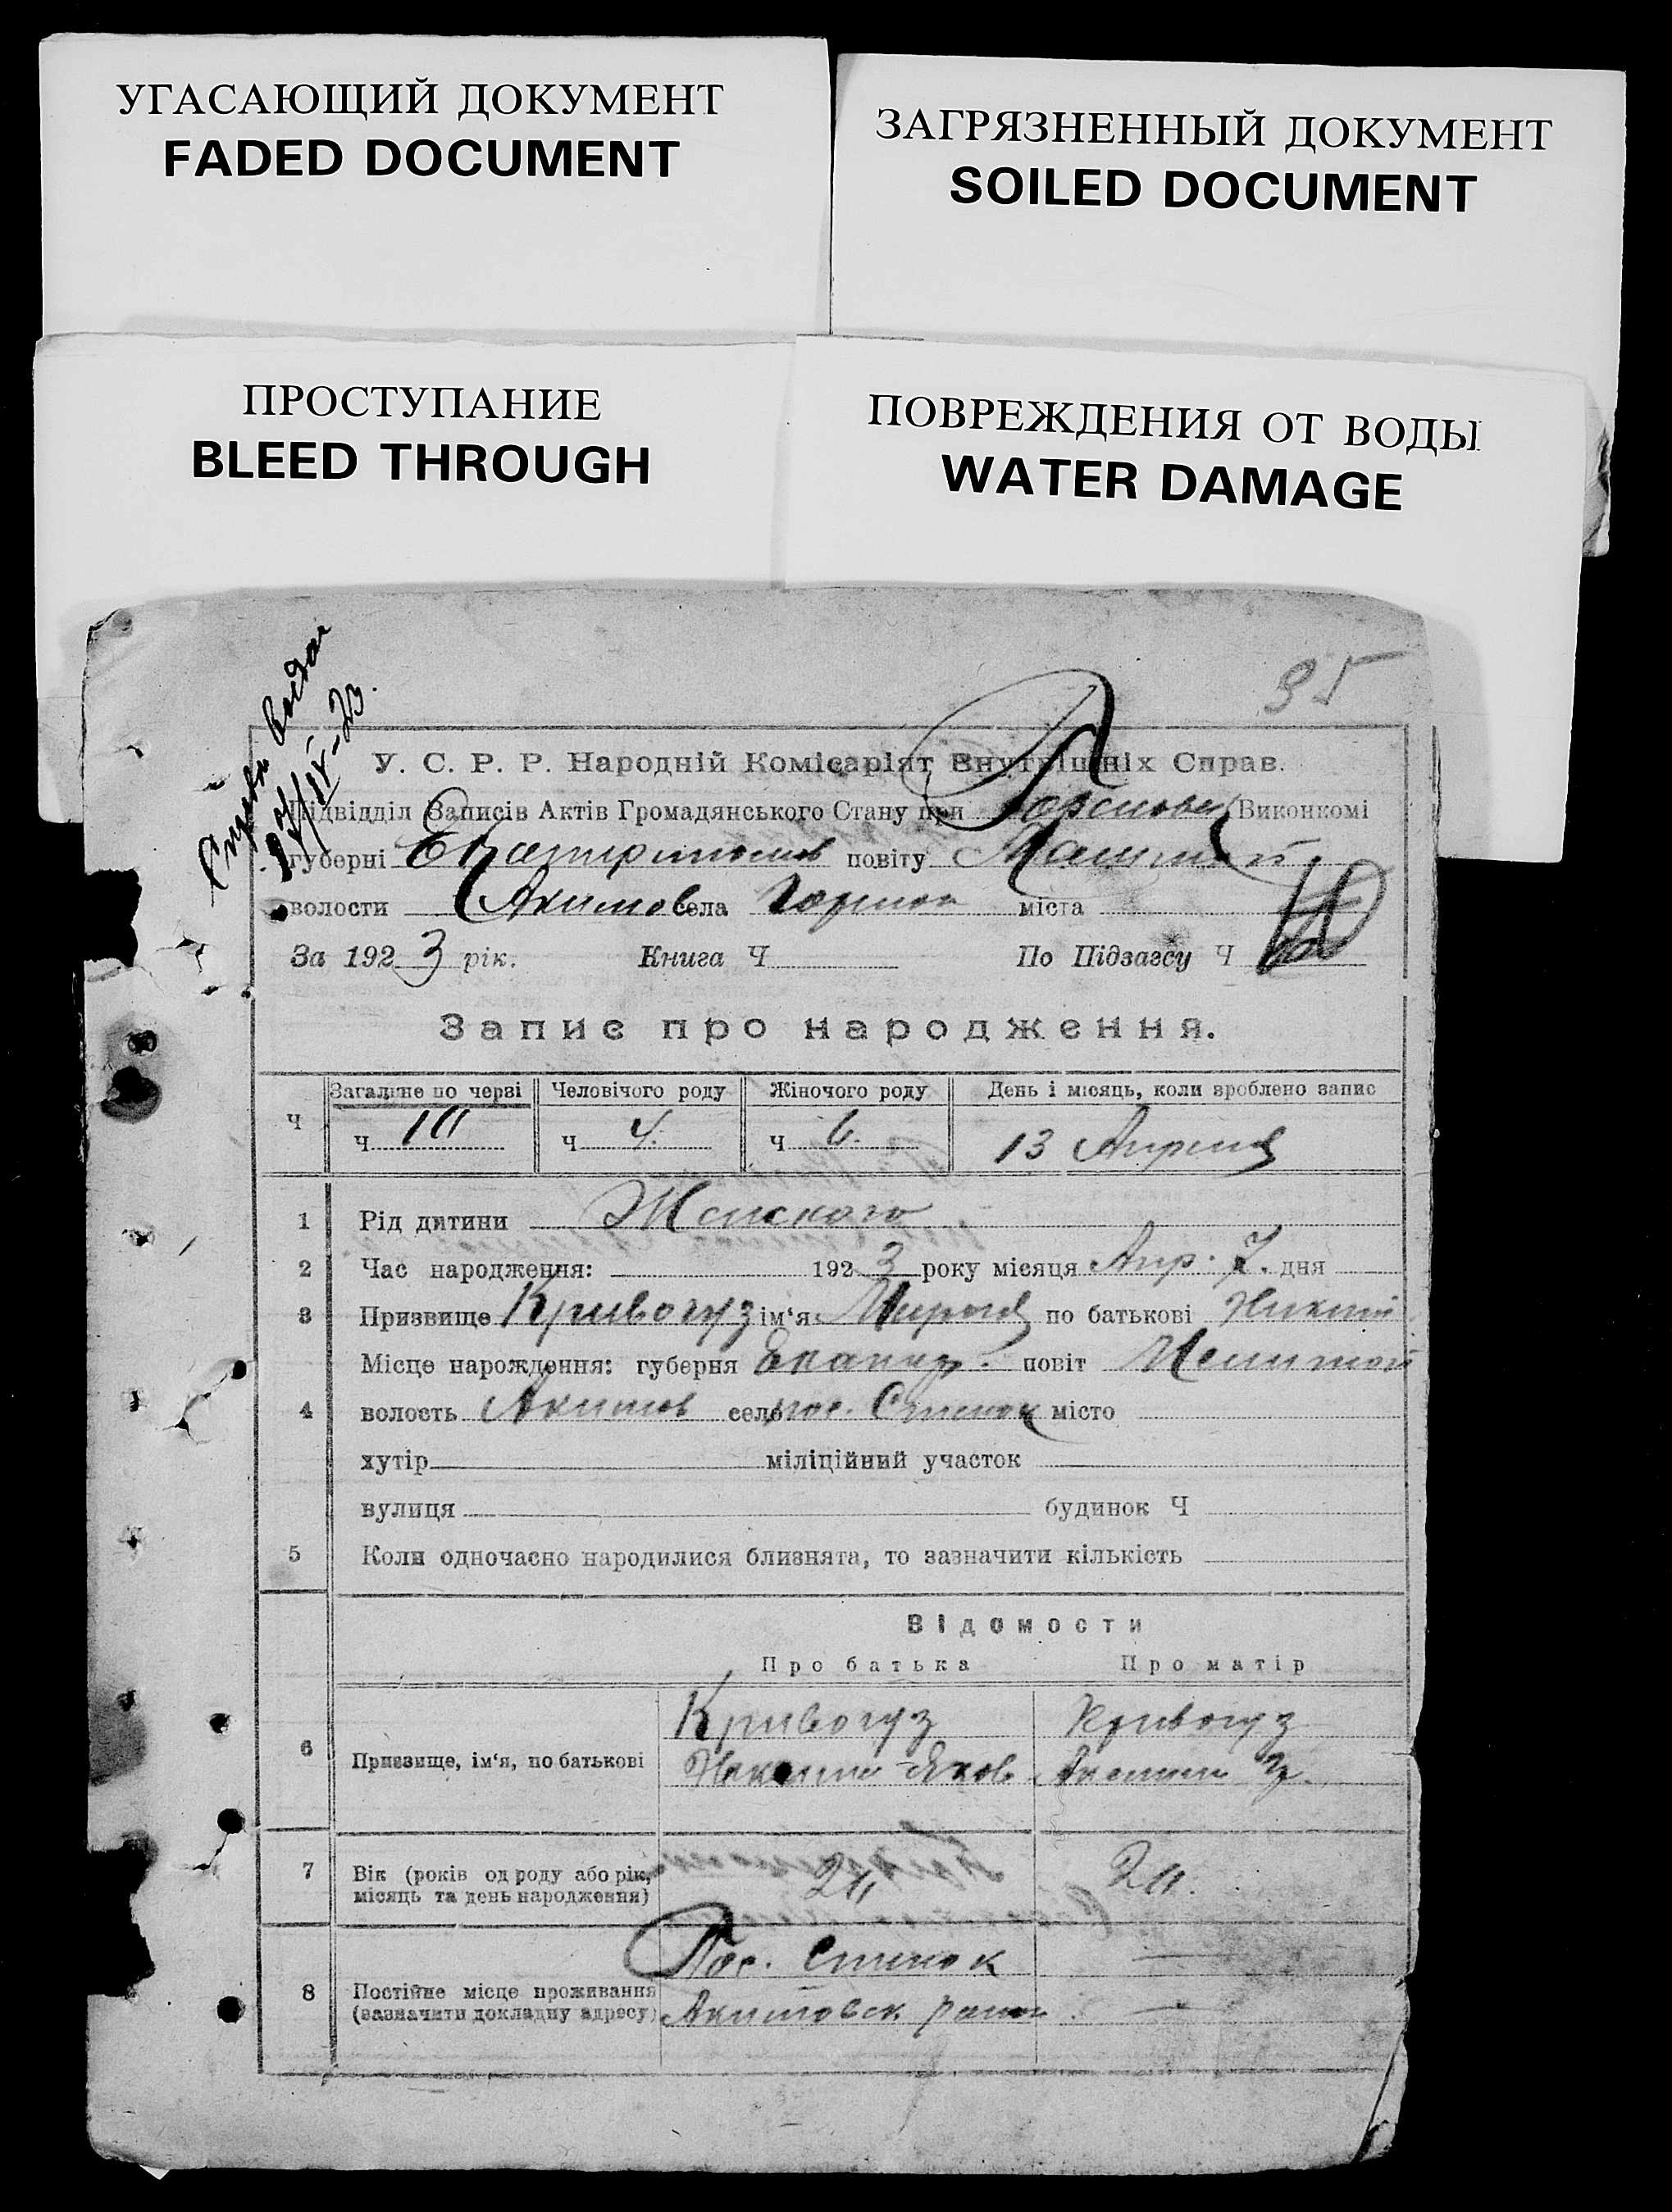 УГАСАЮЩИЙ ДОКУМЕНТ
FADED DOCUMENT
ЗАГРЯЗНЕННЫЙ ДОКУМЕНТ
SOILED DOCUMENT
ПРОСТУПАНИЕ
BLEED THROUGH
ПОВРЕЖДЕНИЯ ОТ ВОДЫ
WATER DAMAGE
95
У. С. Р. Р. Народній Комісаріят Внутрішніх Справ.
Підвідділ Записів Актів Громадянського Стану при Виконкомі
губерні повіту
волости Акимов села міста
За 1923 рік. Книга Ч По Підзагсу Ч
Запис про народження.
Ч Загальне по черзі Человічого роду Жіночого роду День і місяць, коли зроблено запис
Ч 10 Ч 4. Ч 6. 13 Апреля
1 Рід дитини Женского
2 Час народження: 1923 року місяця Апр. 7. дня
3 Призвище Кривогуз ім‘я по батькові Никит
Місце нарождення: губерня повіт
4 волость Акимов село пос. місто
хутір міліційний участок
вулиця будинок Ч
5 Коли одночасно народилися близнята, то зазначити кількість
Відомости
Про батька Про матір
Кривогуз Кривогуз
6 Призвище, ім‘я, по батькові Яков
7 Вік (років од роду або рік, місяць та день народження)
Пос.
8 Постійне місце проживання (зазначити докладну адресу) Акимовск район